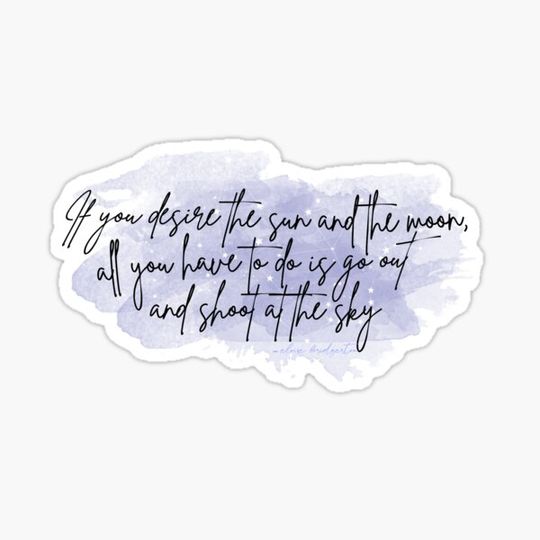 If you desire the sun and the moon,
all you have to do is go out
and shoot at the sky
- eloise bridgerton